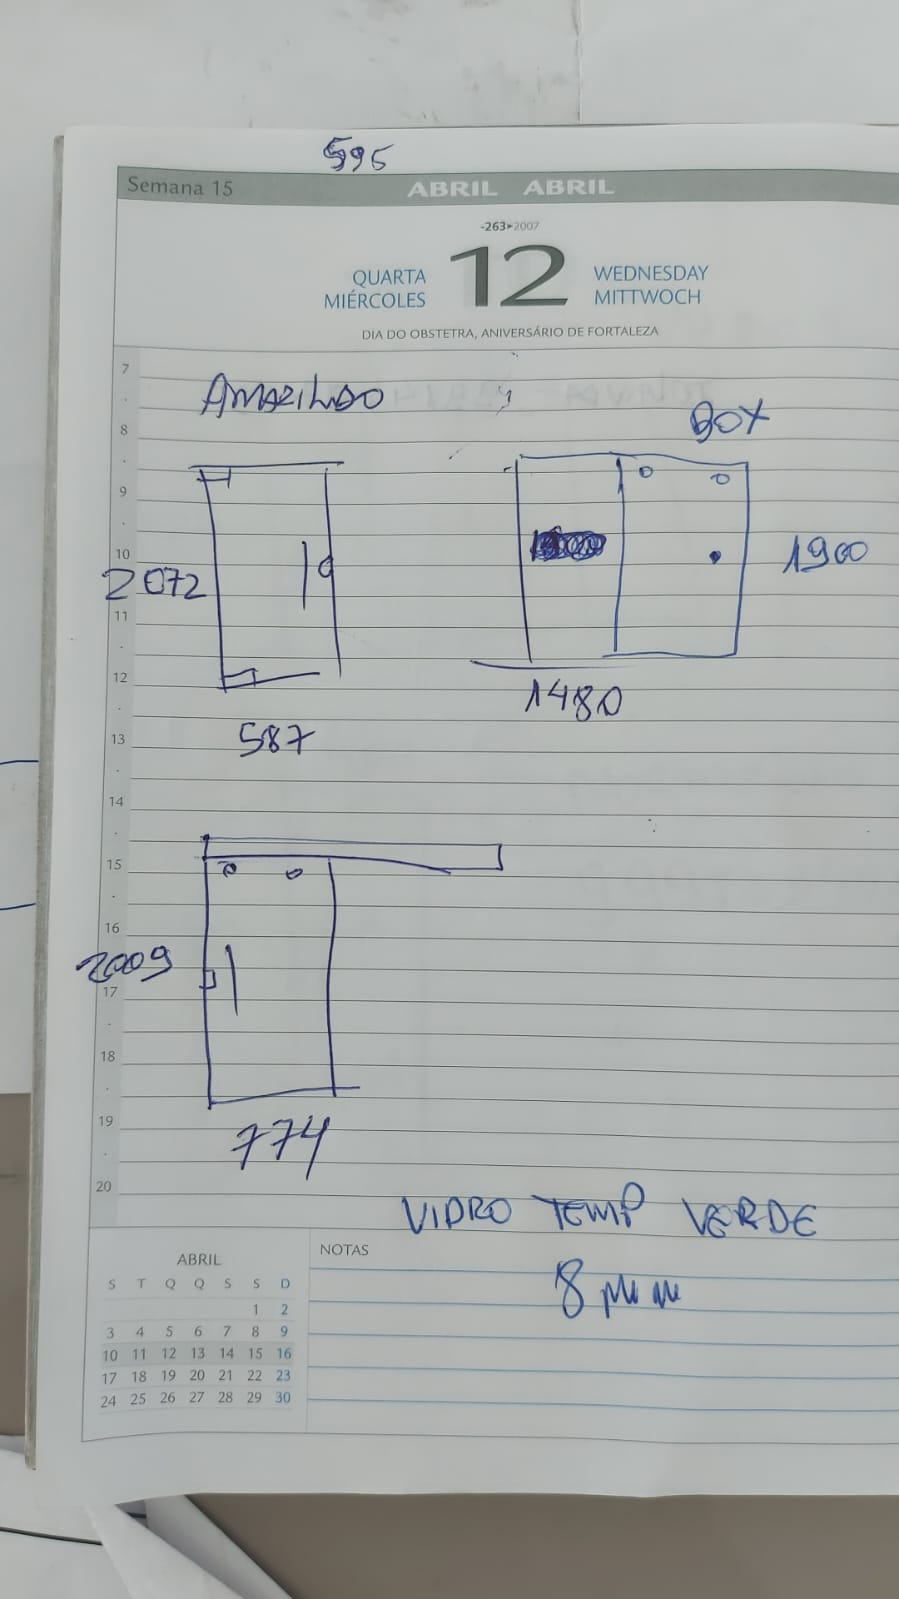 595
Semana 15
ABRIL ABRIL
-263▸2007
QUARTA
MIÉRCOLES
12
WEDNESDAY
MITTWOCH
DIA DO OBSTETRA, ANIVERSÁRIO DE FORTALEZA
7
AMARILDO
8
BOX
9
10
1900
2072
11
12
1480
587
13
14
15
16
2009
17
18
19
774
20
VIDRO TEMP VERDE
8 mm
NOTAS
ABRIL
S T Q Q S S D
1 2
3 4 5 6 7 8 9
10 11 12 13 14 15 16
17 18 19 20 21 22 23
24 25 26 27 28 29 30